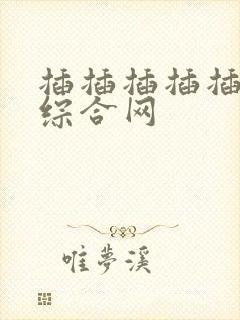 插插插插插
综合网
唯夢溪